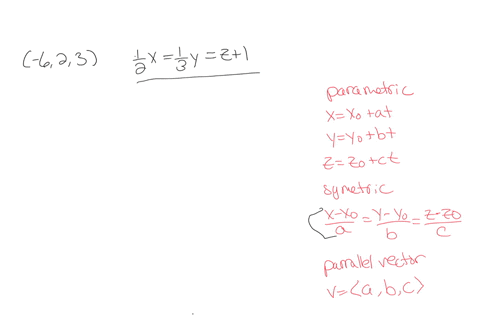 (-6,2,3) ½x=⅓y=z+1
parametric
x=x₀+at
y=y₀+bt
z=z₀+ct
symetric
(x-x₀)/a=(y-y₀)/b=(z-z₀)/c
parrallel vector
v=⟨a,b,c⟩